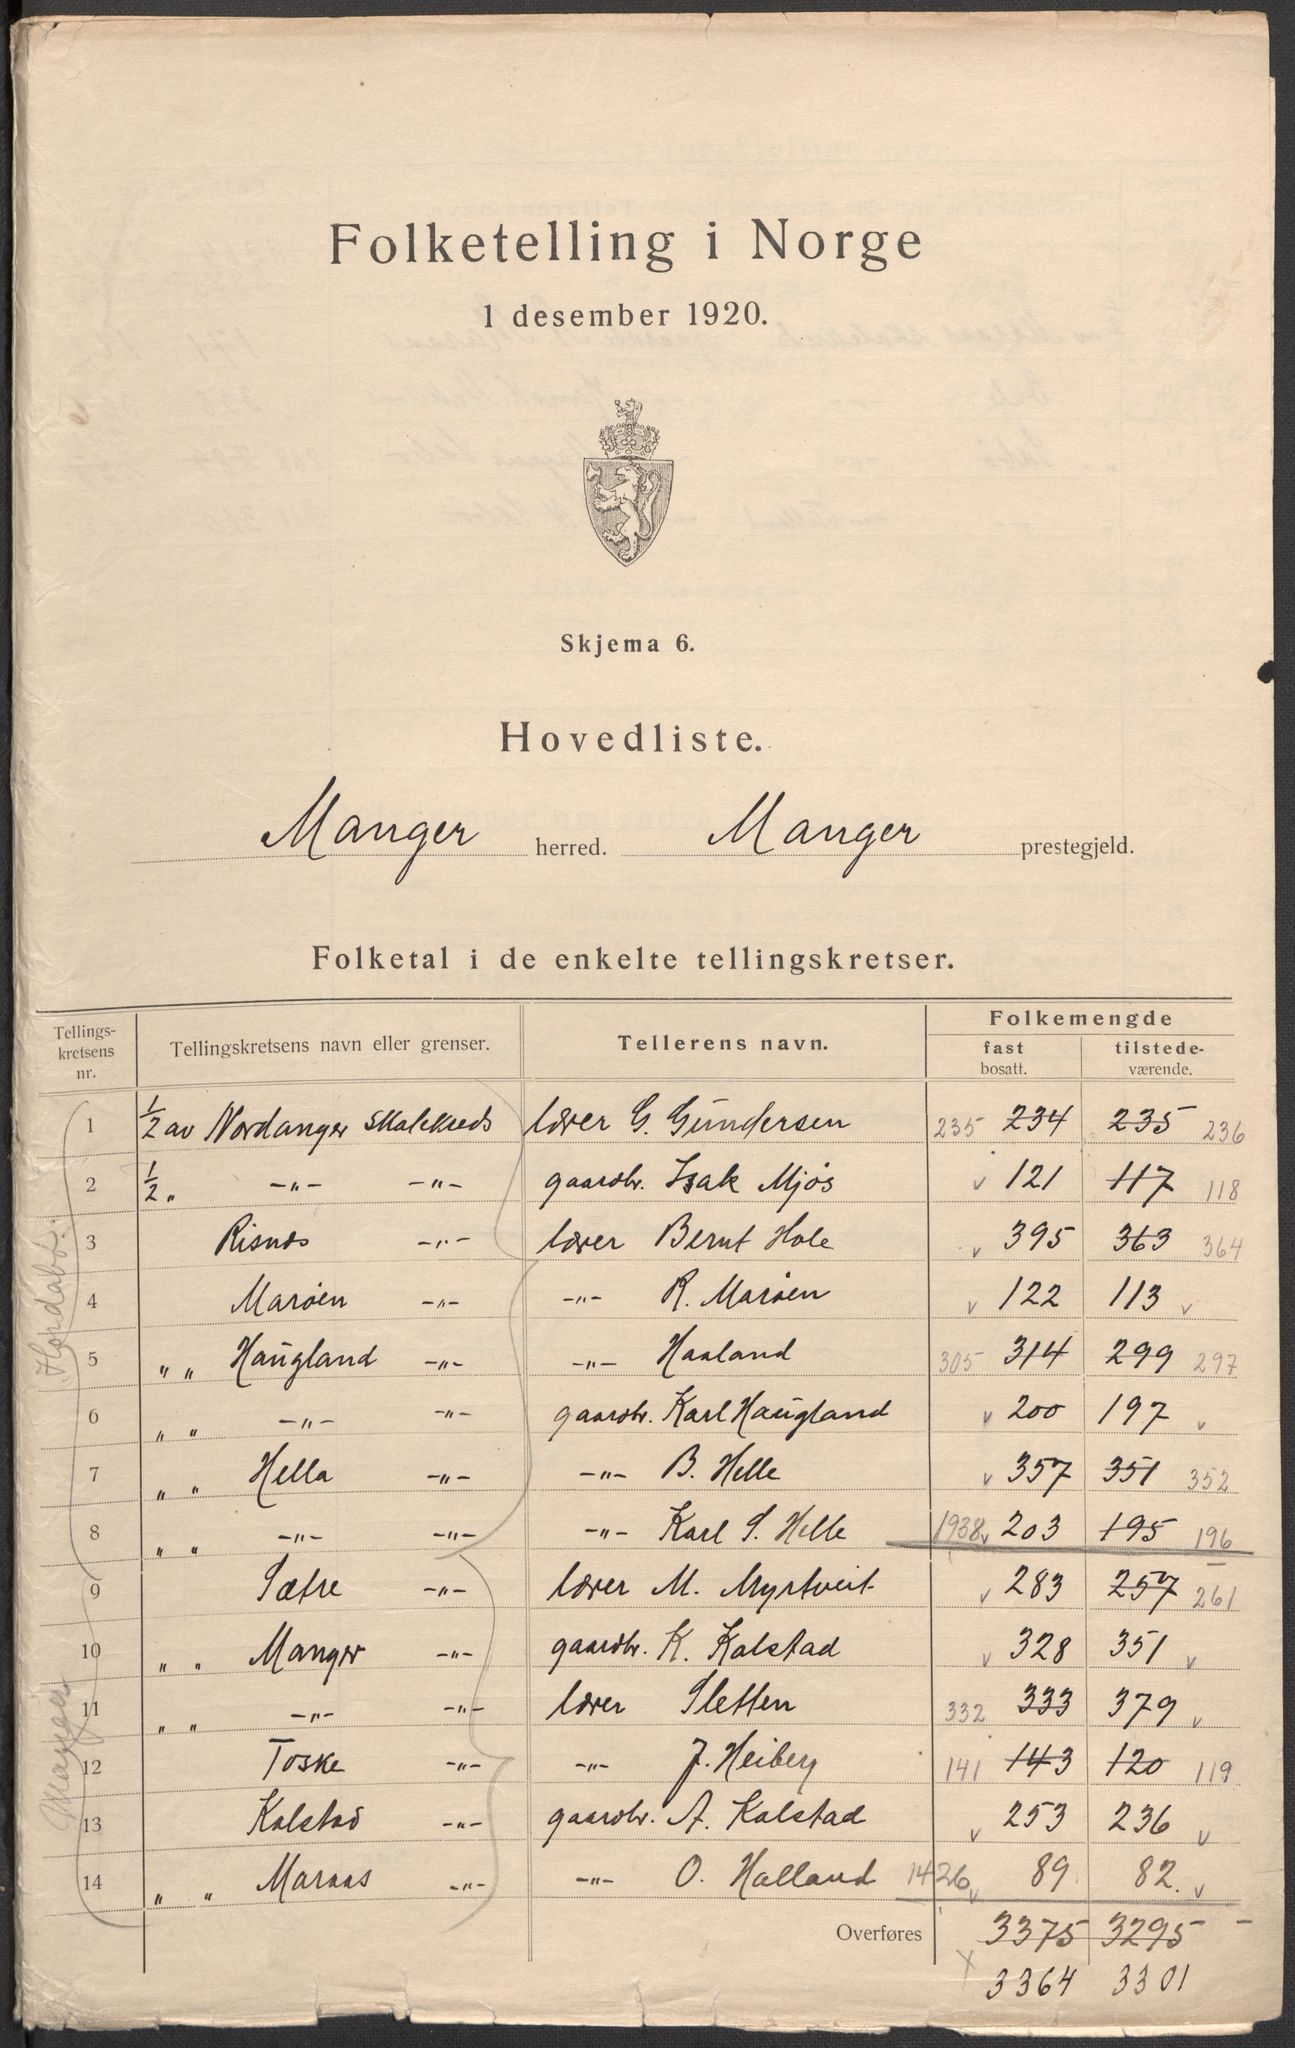 Folketelling i Norge
1 desember 1920.
Skjema 6.
Hovedliste.
Manger herred. Manger prestegjeld.
Folketal i de enkelte tellingskretser.
Tellings-
kretsens
nr.
Tellingskretsens navn eller grenser.
Tellerens navn.
Folkemengde
fast
bosatt.
tilstede-
værende.
Hordabø
Manger
1 1/2 av Nordanger skolekreds lærer G. Gundersen 235 234 235 236
2 1/2 " -"- -"- gaardbr. Isak Mjøs v 121 117 118
3 Risnes -"- lærer Bernt Hole v 395 363 364
4 Marøen -"- -"- R. Marøen v 122 113 v
5 " " Haugland -"- -"- Haaland 305 314 299 297
6 " " -"- -"- gaardbr. Karl Haugland v 200 197 v
7 " " Hella -"- -"- B. Helle v 357 351 352
8 " " -"- -"- -"- Karl S. Helle 1938 v 203 195 196
9 Sætre -"- lærer M. Myrtveit v 283 257 261
10 " " Manger -"- gaardbr. K. Kolstad v 328 351 v
11 " " -"- -"- lærer Sletten 332 333 379 v
12 Toske -"- -"- J. Heiberg 141 143 120 119
13 Kolstad -"- gaardbr. A. Kolstad v 253 236 v
14 " " Maraas -"- -"- O. Halland 1426 v 89 82. v
Overføres 3375 3295 -
x 3364 3301